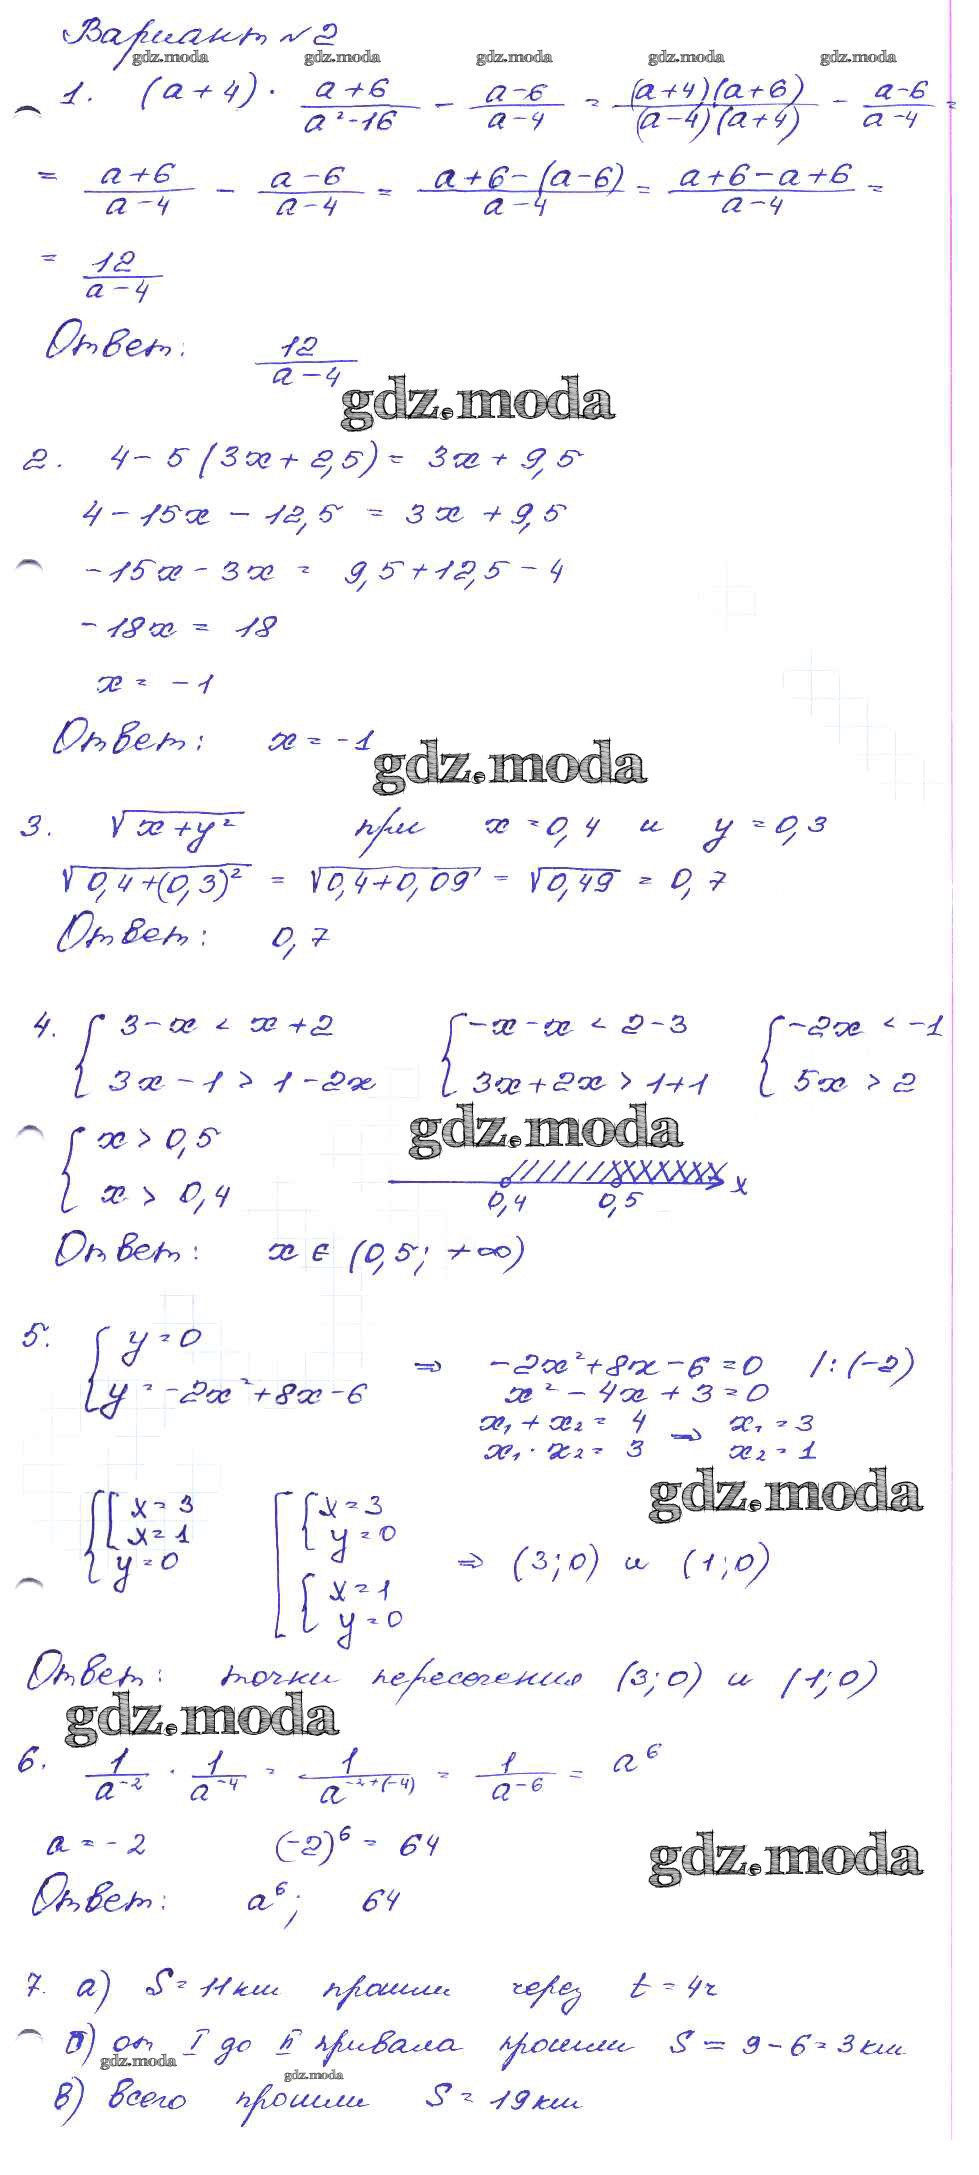 Вариант №2
gdz.moda gdz.moda gdz.moda gdz.moda gdz.moda
1. (a+4) · (a+6)/(a²-16) - (a-6)/(a-4) = ((a+4)(a+6))/((a-4)(a+4)) - (a-6)/(a-4) =
= (a+6)/(a-4) - (a-6)/(a-4) = (a+6-(a-6))/(a-4) = (a+6-a+6)/(a-4) =
= 12/(a-4)
Ответ: 12/(a-4)
gdz.moda
2. 4-5(3x+2,5) = 3x+9,5
4-15x-12,5 = 3x+9,5
-15x-3x = 9,5+12,5-4
-18x = 18
x = -1
Ответ: x = -1
gdz.moda
3. √(x+y²) при x=0,4 и y=0,3
√(0,4+(0,3)²) = √(0,4+0,09) = √0,49 = 0,7
Ответ: 0,7
4. { 3-x < x+2 { -x-x < 2-3 { -2x < -1
3x-1 > 1-2x 3x+2x > 1+1 5x > 2
gdz.moda
{ x > 0,5
x > 0,4 0,4 0,5 x
Ответ: x ∈ (0,5; +∞)
5. { y=0 ⇒ -2x²+8x-6=0 /:(-2)
y=-2x²+8x-6 x²-4x+3=0
x₁+x₂=4 ⇒ x₁=3
x₁·x₂=3 x₂=1
gdz.moda
{ [ x=3 [ { x=3
x=1 y=0
y=0 ⇒ (3;0) и (1;0)
{ x=1
y=0
Ответ: точки пересечения (3;0) и (1;0)
gdz.moda
6. 1/a⁻² · 1/a⁻⁴ = 1/a⁻²⁺⁽⁻⁴⁾ = 1/a⁻⁶ = a⁶
a=-2 (-2)⁶ = 64
gdz.moda
Ответ: a⁶; 64
7. а) S=11км прошли через t=4ч
б) от I до II привала прошли S=9-6=3км
gdz.moda gdz.moda
в) всего прошли S=19км